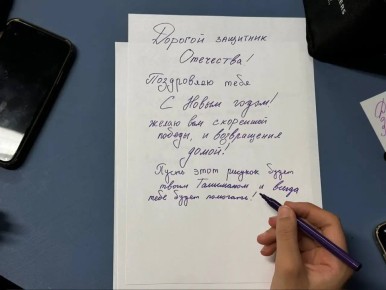 Дорогой защитник
Отечества!
Поздравляю тебя
С Новым годом!
желаю вам скорейшей
победы, и возвращения
домой!
Пусть этот рисунок будет
твоим Талисманом и всегда
тебе будет помогать!